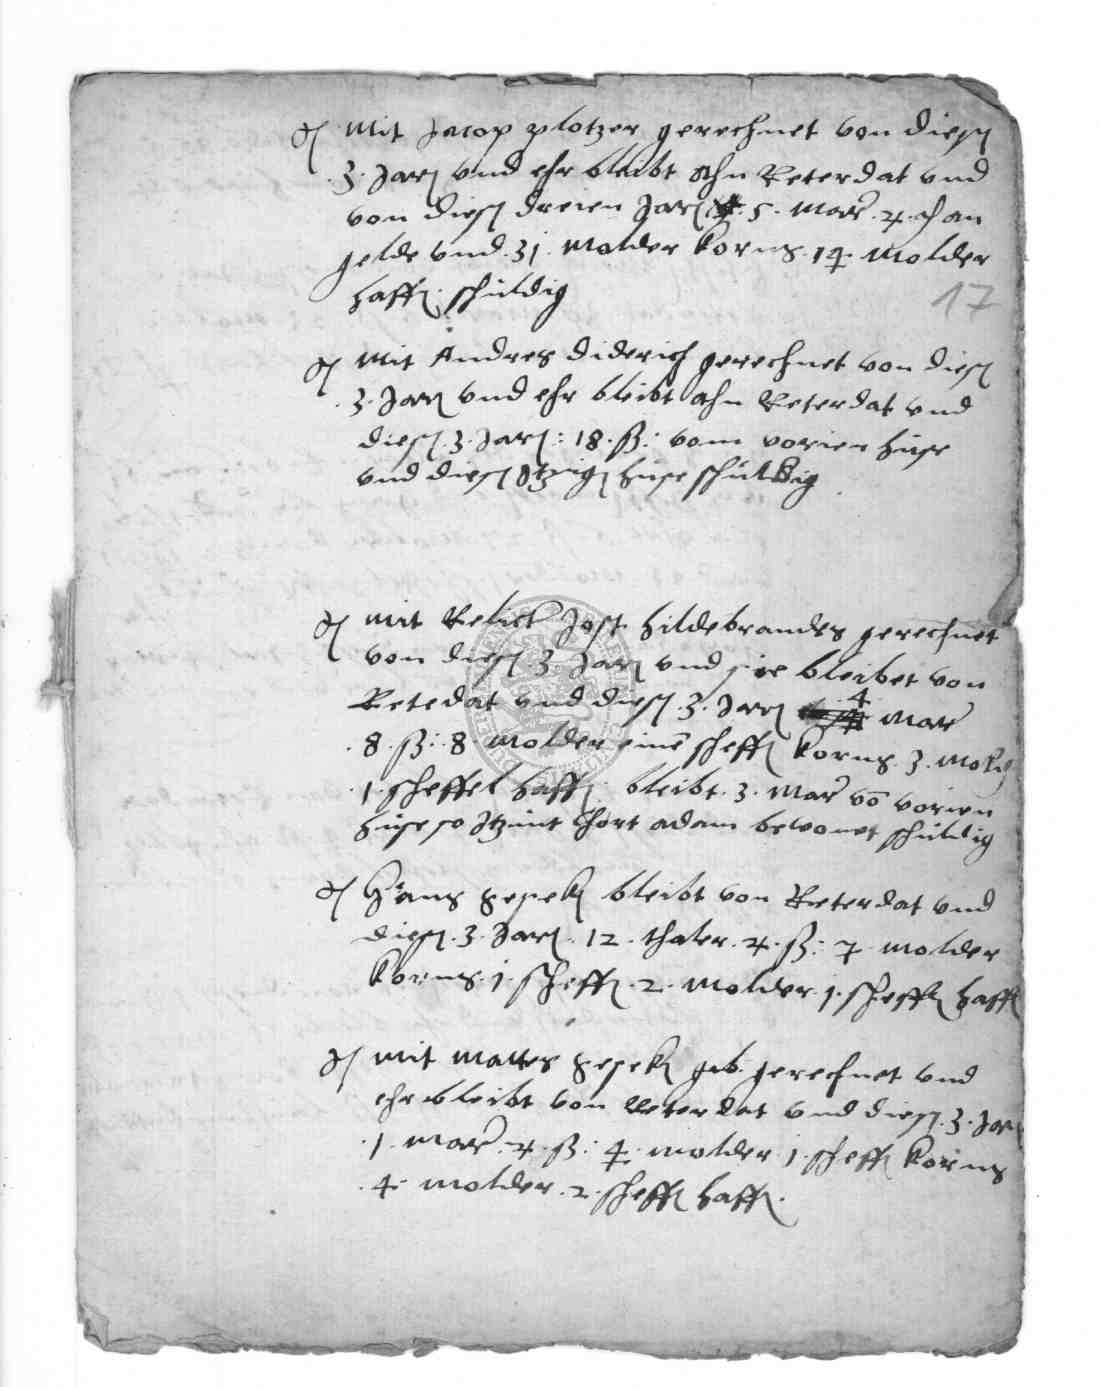 Mit Jacop plotzer gerechnet von diesen
3. Jaren vnd ehr bleibt ahn Reterdat vnd
von diesen dreien Jaren 5. Marc 4 an
gelde vnd. 31. Molder korns. 14. Molder
haffern schuldig
17
Mit Andres Diderich gerechnet von diesen
3. Jaren vnd ehr bleibt ahn Reterdat vnd
diesen 3. Jaren: 18. ß: vom vorien huse
vnd diesen Jtzigen huse schuldig
Mit Relict Jost hildebrandes gerechnet
von diesen 3. Jaren vnd sie bleibet von
Retedat vnd diesen 3. Jaren 4 Marc
8. ß: 8. Molder einen scheff korns 3. Molder
1. scheffel haffern bleibt. 3. Marc vō vorien
huse so Jtzunt adam bewonet schuldig
Hans bleibt von Reterdat vnd
diesen 3. Jaren. 12. thaler. 4. ß: 7 Molder
korns. 1. scheff. 2. Molder. 1. scheff haffern
Mit Mattes gerechnet vnd
ehr bleibt von Reterdat vnd diesen 3. Jaren
1. Marc 4. ß: 4. Molder 1. scheff korns
4. Molder. 2. scheff haffern.